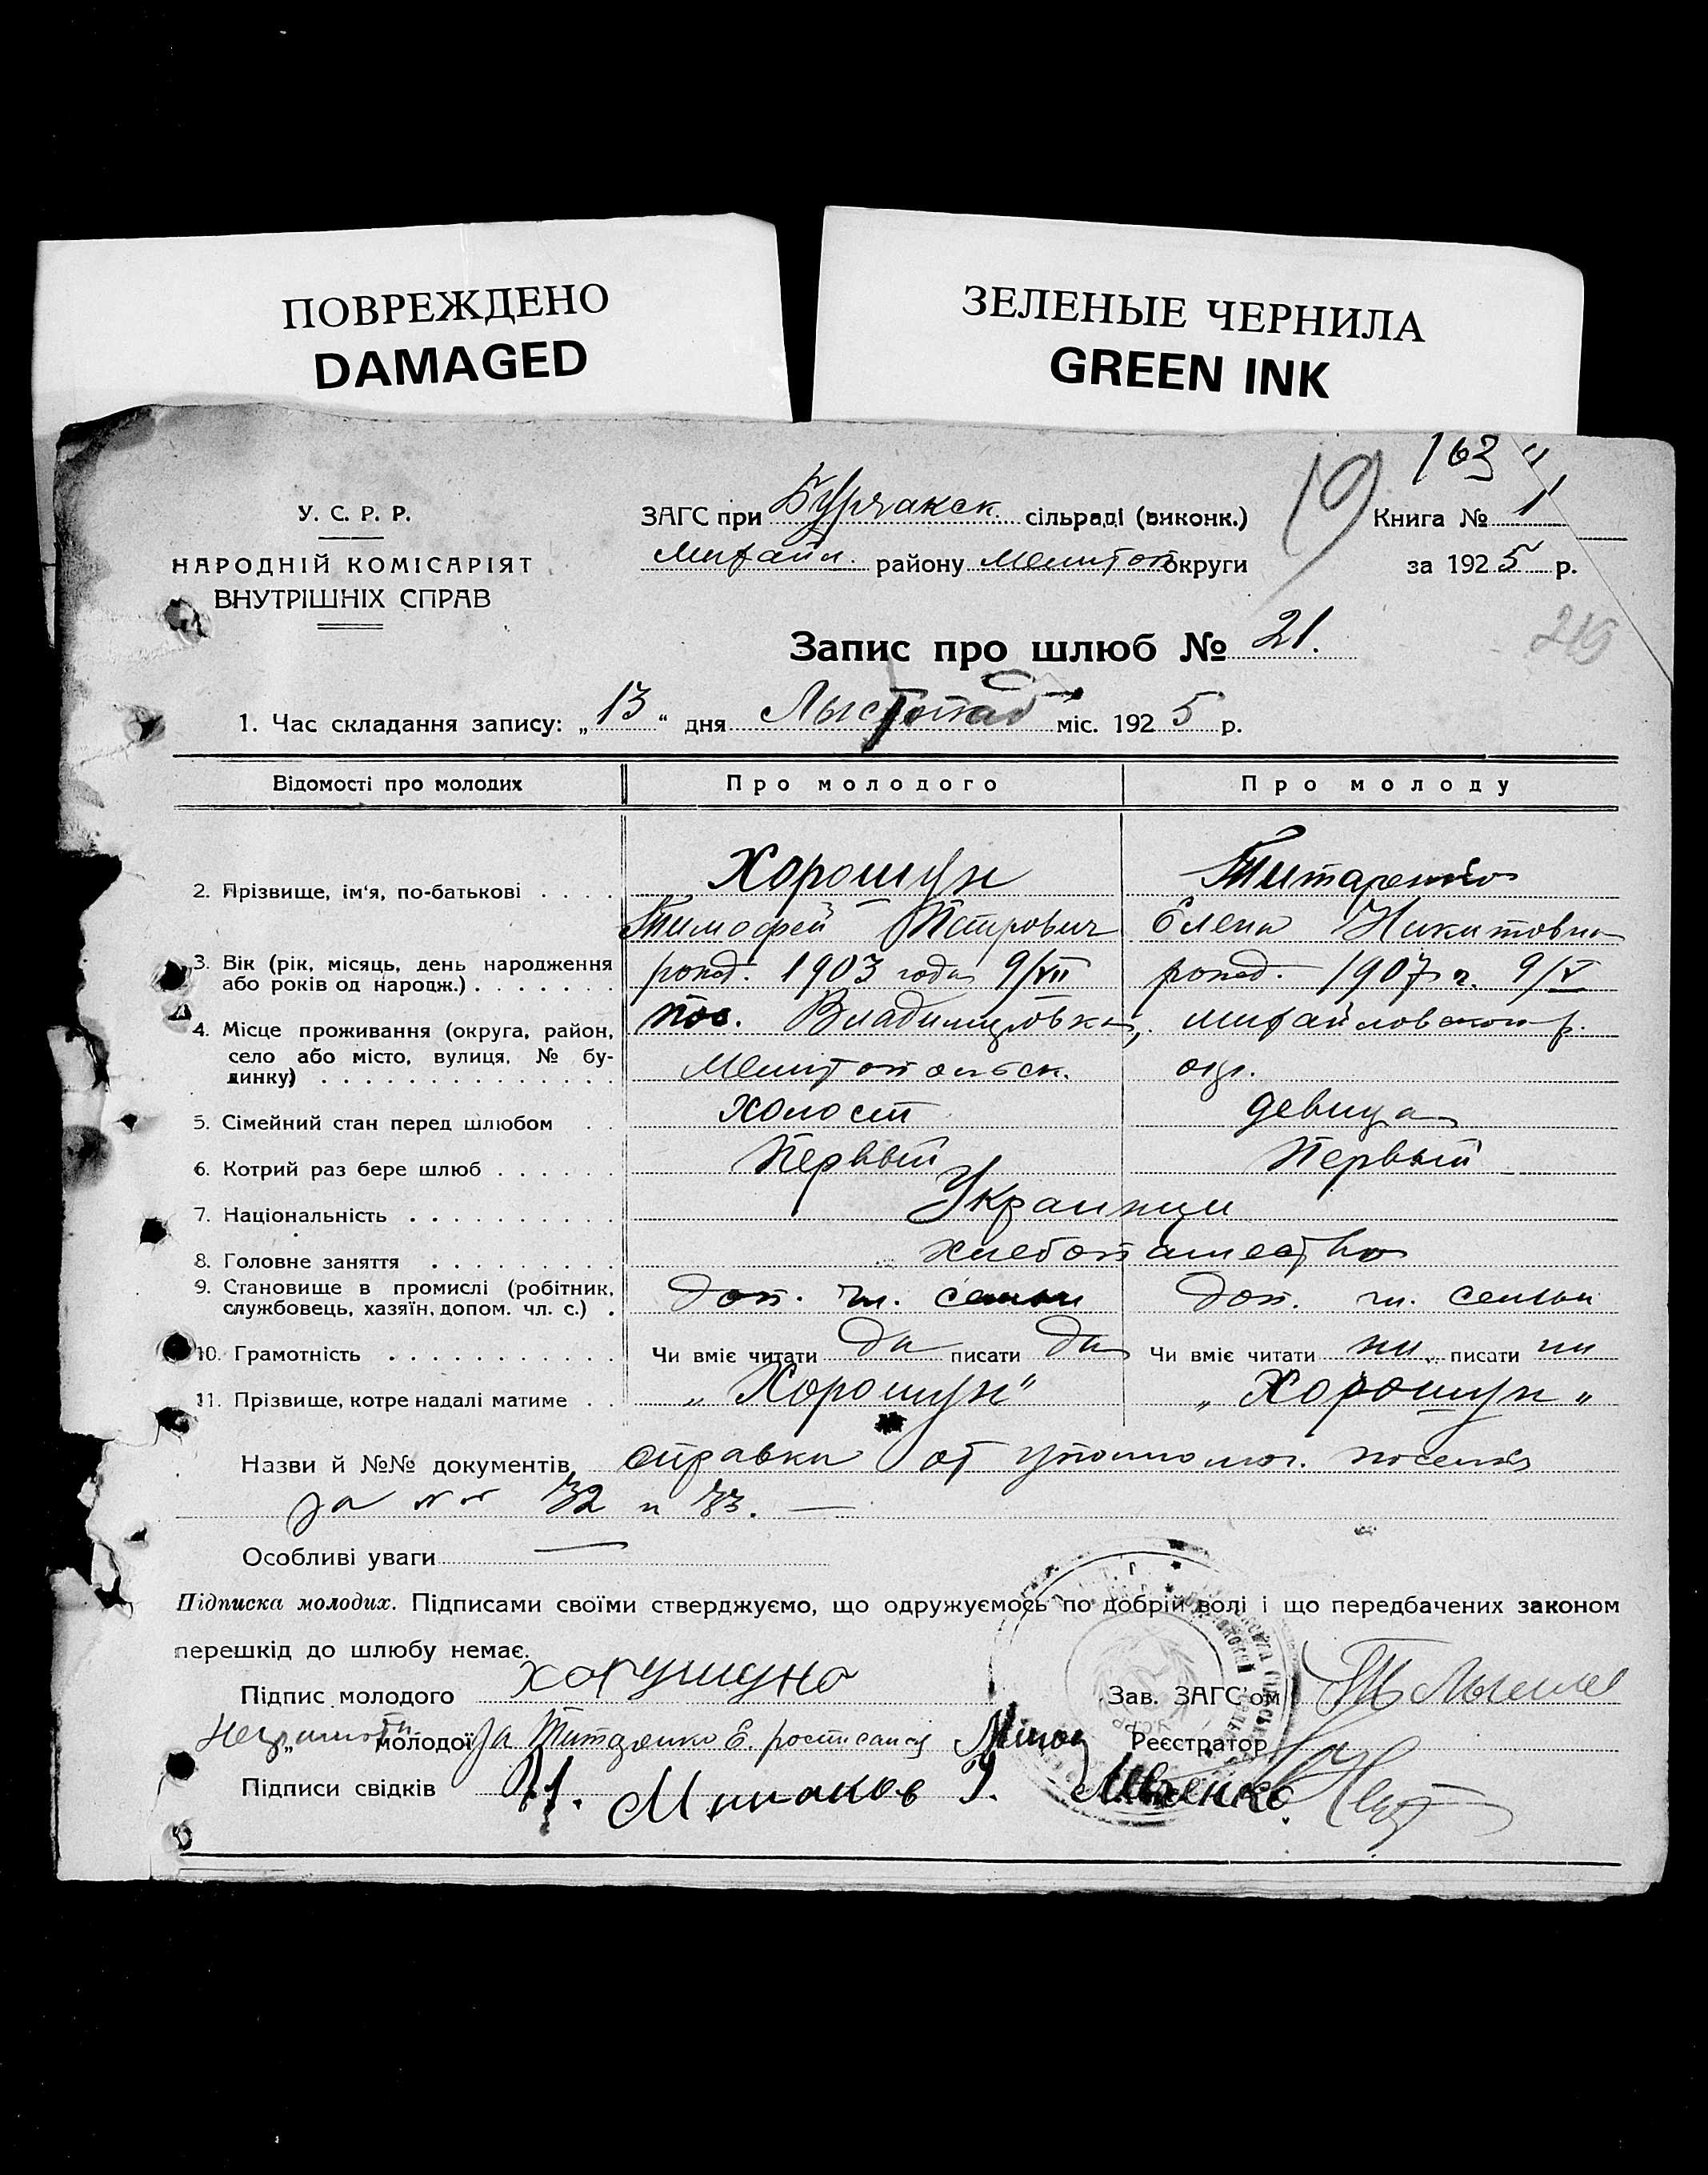 ПОВРЕЖДЕНО
DAMAGED
ЗЕЛЕНЫЕ ЧЕРНИЛА
GREEN INK
163
19
У. С. Р. Р.
НАРОДНІЙ КОМІСАРІЯТ
ВНУТРІШНІХ СПРАВ
ЗАГС при Бурчакск. сільраді (виконк.)
Михайл. району Мелитоп округи
Книга № 1
за 1925 р.
Запис про шлюб № 21.
1. Час складання запису: „13“ дня Лыстопад міс. 1925 р.
Відомості про молодих Про молодого Про молоду
2. Прізвище, ім'я, по-батькові . . . . Хорошун Титаренко
Тимофей Петрович Елена Никитовна
3. Вік (рік, місяць, день народження або років од народж.) . . . . . . . рожд. 1903 года 9/VII рожд. 1907 г. 9/V
4. Місце проживання (округа, район, село або місто, вулиця, № будинку) . . . . . . . . . . . . . . пос. Владимировка, Михайловского р.
Мелитопольск. окр.
5. Сімейний стан перед шлюбом . . Холост девица
6. Котрий раз бере шлюб . . . . . . Первый Первый
7. Національність . . . . . . . . . . Украинцы
8. Головне заняття . . . . . . . . . хлебопашество
9. Становище в промислі (робітник, службовець, хазяїн, допом. чл. с.) . доп. чл. семьи доп. чл. семьи
10. Грамотність . . . . . . . . . . . Чи вміє читати да писати да Чи вміє читати ни писати ни
11. Прізвище, котре надалі матиме . . „Хорошун“ „Хорошун“
Назви й №№ документів справки от уполномоч. поселка
за №№ 32 и 33. —
Особливі уваги —
Підписка молодих. Підписами своїми стверджуємо, що одружуємось по добрій волі і що передбачених законом
перешкід до шлюбу немає.
Підпис молодого Зав. ЗАГС'ом
„ молодої За Титаренко Е. росписался Реєстратор
Підписи свідків